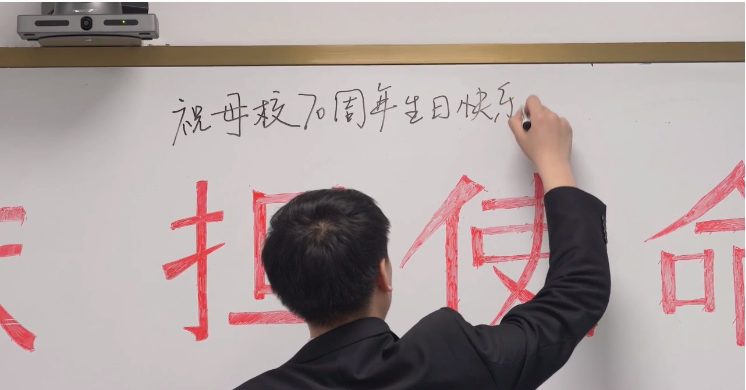 祝母校70周年生日快乐
担使命